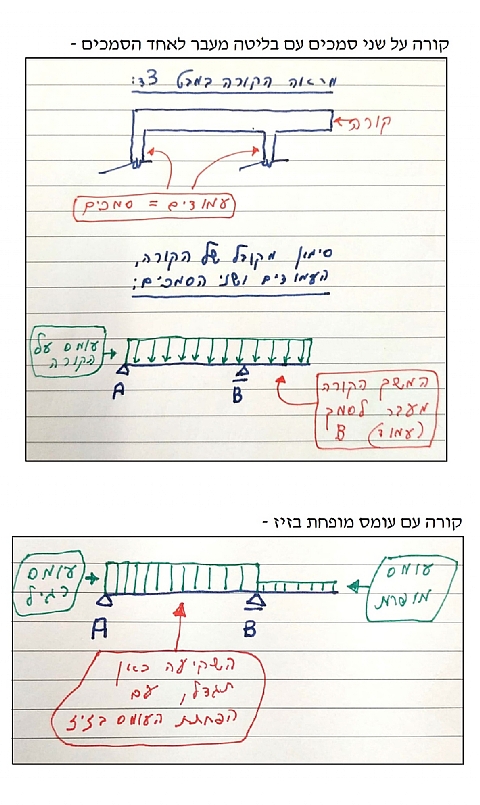 קורה על שני סמכים עם בליטה מעבר לאחד הסמכים -
מראה הקורה במבט צד:
קורה
עמודים = סמכים
סימון מקובל של הקורה,
העמודים ושני הסמכים:
עומס על
הקורה
A
B
המשך הקורה
מעבר לסמך
(עמוד) B
קורה עם עומס מופחת בזיז -
עומס
רגיל
עומס
מופחת
A
B
השקיעה כאן
תגדל, עם
הפחתת העומס בזיז